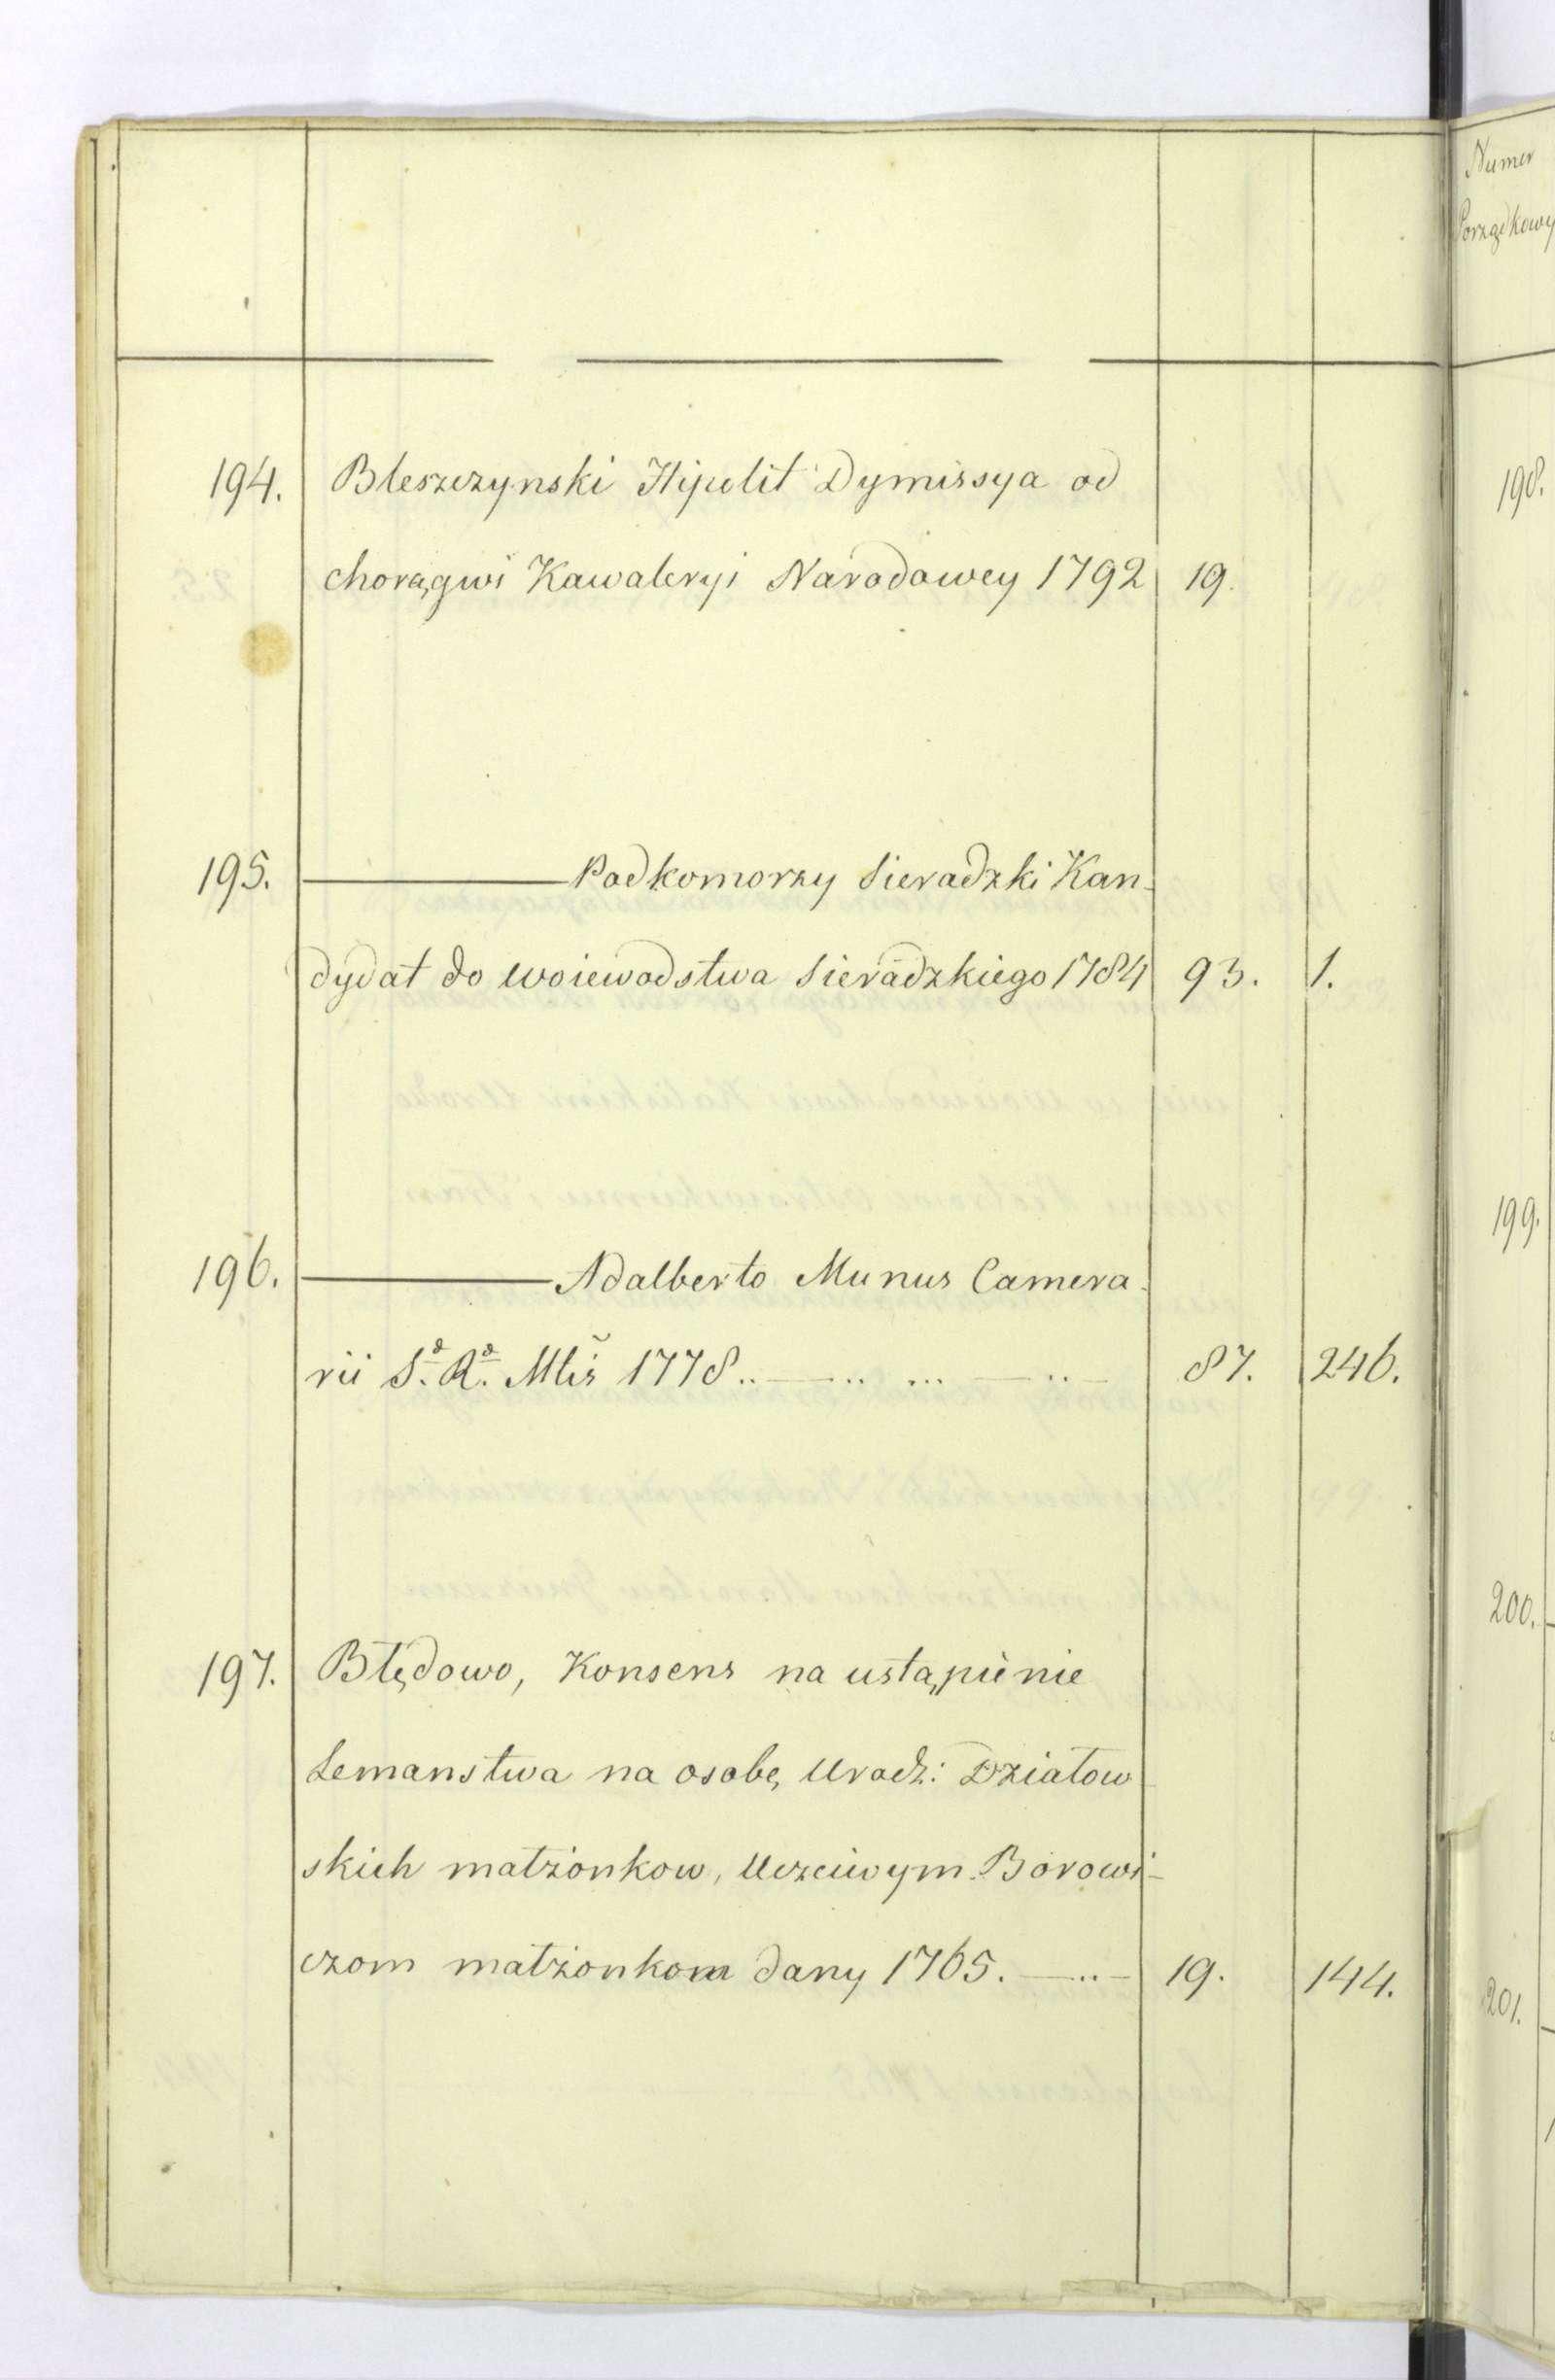 Numer
Porządkowy
194. Bleszczynski Hipolit Dymissya od
chorągwi Kawaleryi Narodowey 1792 19.
195. ——— Podkomorzy Sieradzki Kan-
dydat do woiewodstwa Sieradzkiego 1784 93. 1.
196. ——— Adalberto Munus Camera-
rii S. R. Mtis 1778 .. — .. ... — .. — 87. 246.
197. Błędowo, Konsens na ustąpienie
Lemanstwa na osobę Urodz: Działow-
skich małżonkow, Uczciwym Borowi-
czom małżonkom dany 1765. — .. — 19. 144.
198.
199.
200.
201.